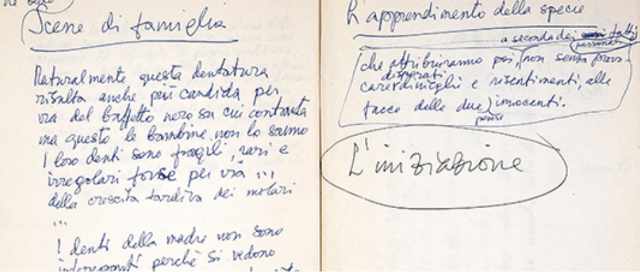 Scene di famiglia
Naturalmente questa dentatura
risulta anche più candida per
via del baffetto nero su cui contrasta
ma questo le bambine non lo sanno
I loro denti sono fragili, rari e
irregolari forse per via ...,
della crescita tardiva dei molari
...
I denti della madre non sono
interessanti perchè si vedono
L'apprendimento della specie
a seconda dei fatti
che attribuiranno poi, non senza
disparati
e risentimenti, alle
facce delle due innocenti.
L'iniziazione